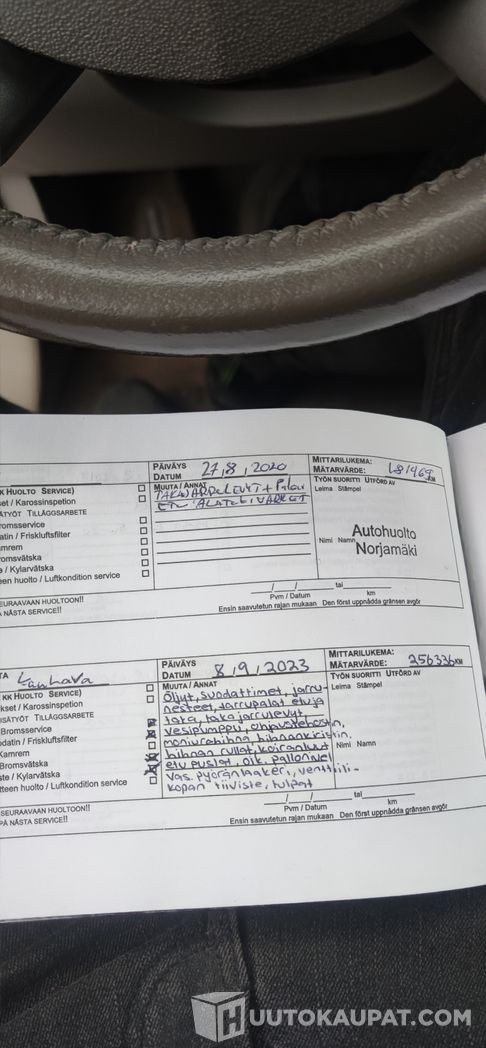 PÄIVÄYS
DATUM 27,8, 2020
MITTARILUKEMA:
MÄTARVÄRDE: KM
KK HUOLTO SERVICE)
kset / Karossinspetion
SÄTYÖT TILLÄGGSARBETE
romsservice
datin / Friskluftsfilter
amrem
romsvätska
e / Kylarvätska
teen huolto / Luftkondition service
MUUTA / ANNAT
TAKAJARRULEVYT + Palat
ETU ALATUKIVARRET
TYÖN SUORITTI UTFÖRD AV
Leima Stämpel
Nimi Namn
Autohuolto
Norjamäki
SEURAAVAAN HUOLTOON!!
NÄSTA SERVICE!!
/ / tai km
Pvm / Datum km
Ensin saavutetun rajan mukaan Den först uppnådda gränsen avgör
TA Lauhava
PÄIVÄYS
DATUM 8,9,2023
MITTARILUKEMA:
MÄTARVÄRDE: 256336 KM
KK HUOLTO SERVICE)
kset / Karossinspetion
SÄTYÖT TILLÄGGSARBETE
Bromsservice
odatin / Friskluftsfilter
Kamrem
Bromsvätska
ste / Kylarvätska
tteen huolto / Luftkondition service
MUUTA / ANNAT
Öljyt, suodattimet, jarru-
nesteet, jarrupalat etu ja
taka, taka jarrulevyt
vesipumppu, ohjaustehostin,
moniurahihna hihnankiristin,
hihnan rullat, koiranluut
etu puslat, oik. pallonivel
vas. pyöränlaakeri, venttiili-
kopan tiiviste, tulpat
TYÖN SUORITTI UTFÖRD AV
Leima Stämpel
Nimi Namn
SEURAAVAAN HUOLTOON!!
PÅ NÄSTA SERVICE!!
/ / tai km
Pvm / Datum km
Ensin saavutetun rajan mukaan Den först uppnådda gränsen avgör
HUUTOKAUPAT.COM